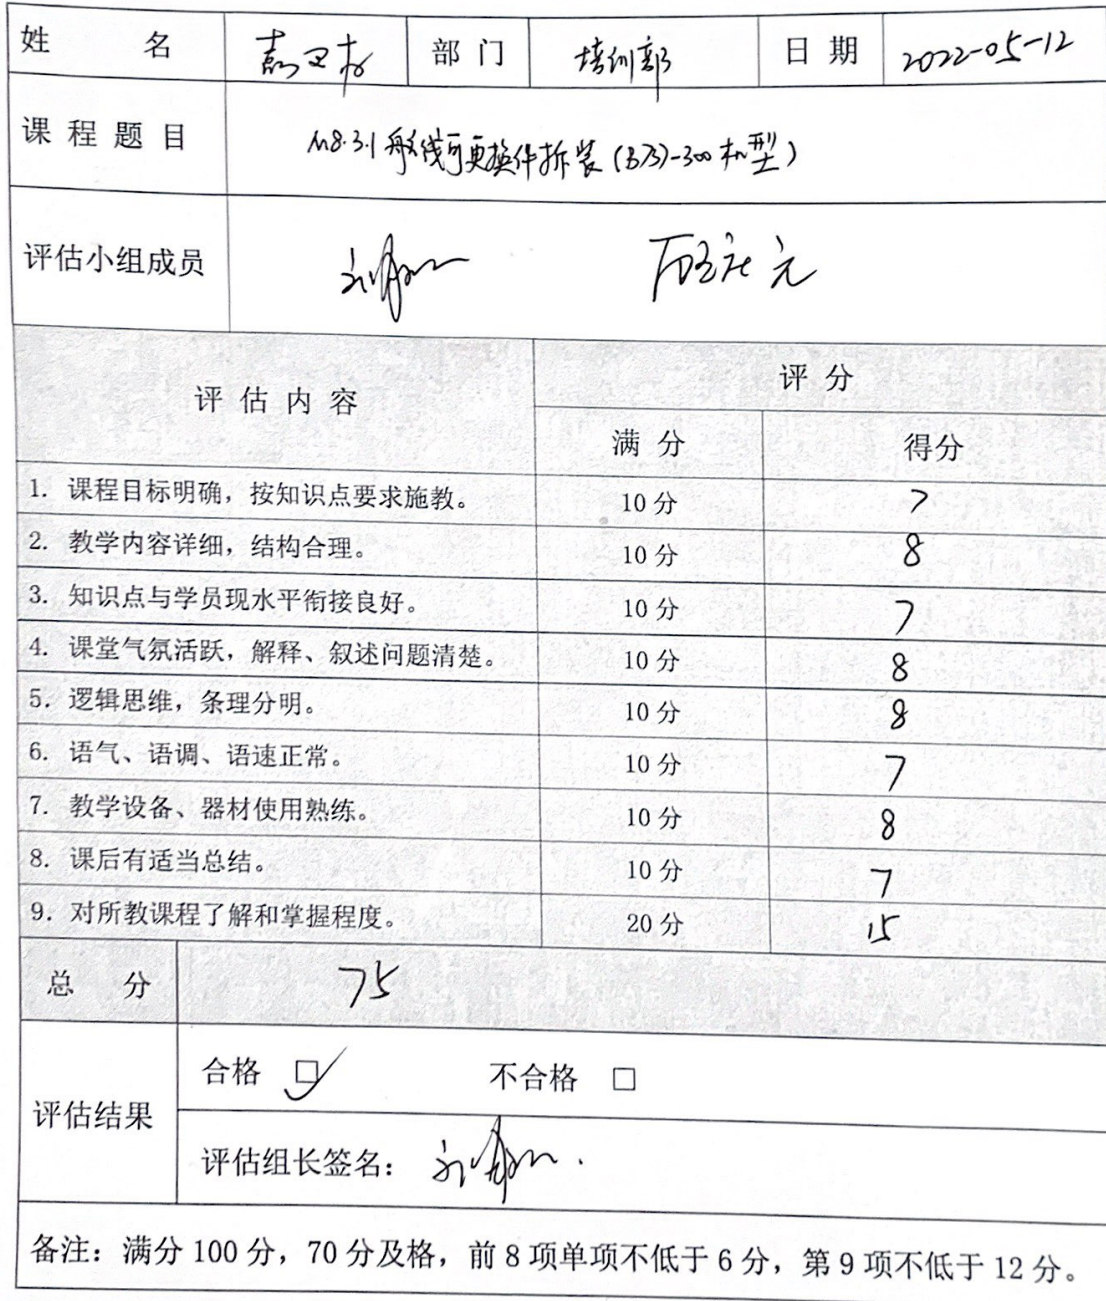 姓 名 部 门 培训部 日 期 2022-05-12
课 程 题 目 M8.3.1航线可更换件拆装(B737-300机型)
评估小组成员
评 估 内 容 评 分
满 分 得分
1. 课程目标明确，按知识点要求施教。 10 分 7
2. 教学内容详细，结构合理。 10 分 8
3. 知识点与学员现水平衔接良好。 10 分 7
4. 课堂气氛活跃，解释、叙述问题清楚。 10 分 8
5. 逻辑思维，条理分明。 10 分 8
6. 语气、语调、语速正常。 10 分 7
7. 教学设备、器材使用熟练。 10 分 8
8. 课后有适当总结。 10 分 7
9. 对所教课程了解和掌握程度。 20 分 15
总 分 75
合格 □ 不合格 □
评估结果
评估组长签名：
备注：满分 100 分，70 分及格，前 8 项单项不低于 6 分，第 9 项不低于 12 分。